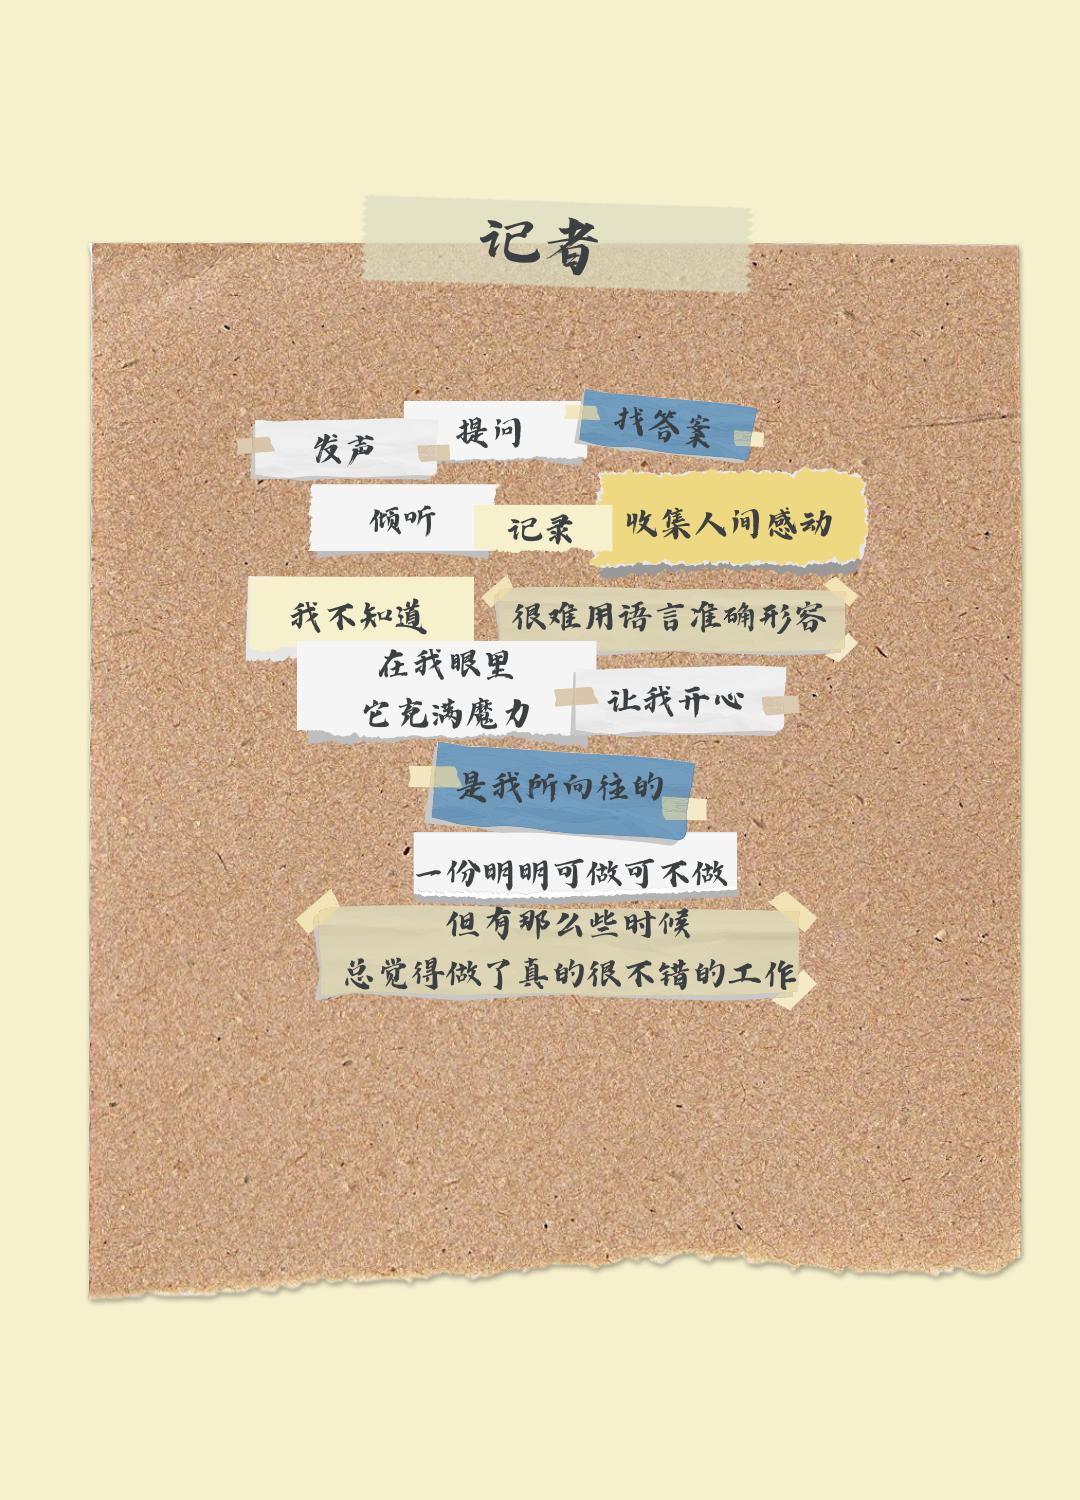 记者
发声 提问 找答案
倾听 记录 收集人间感动
我不知道 很难用语言准确形容
在我眼里
它充满魔力 让我开心
是我所向往的
一份明明可做可不做
但有那么些时候
总觉得做了真的很不错的工作